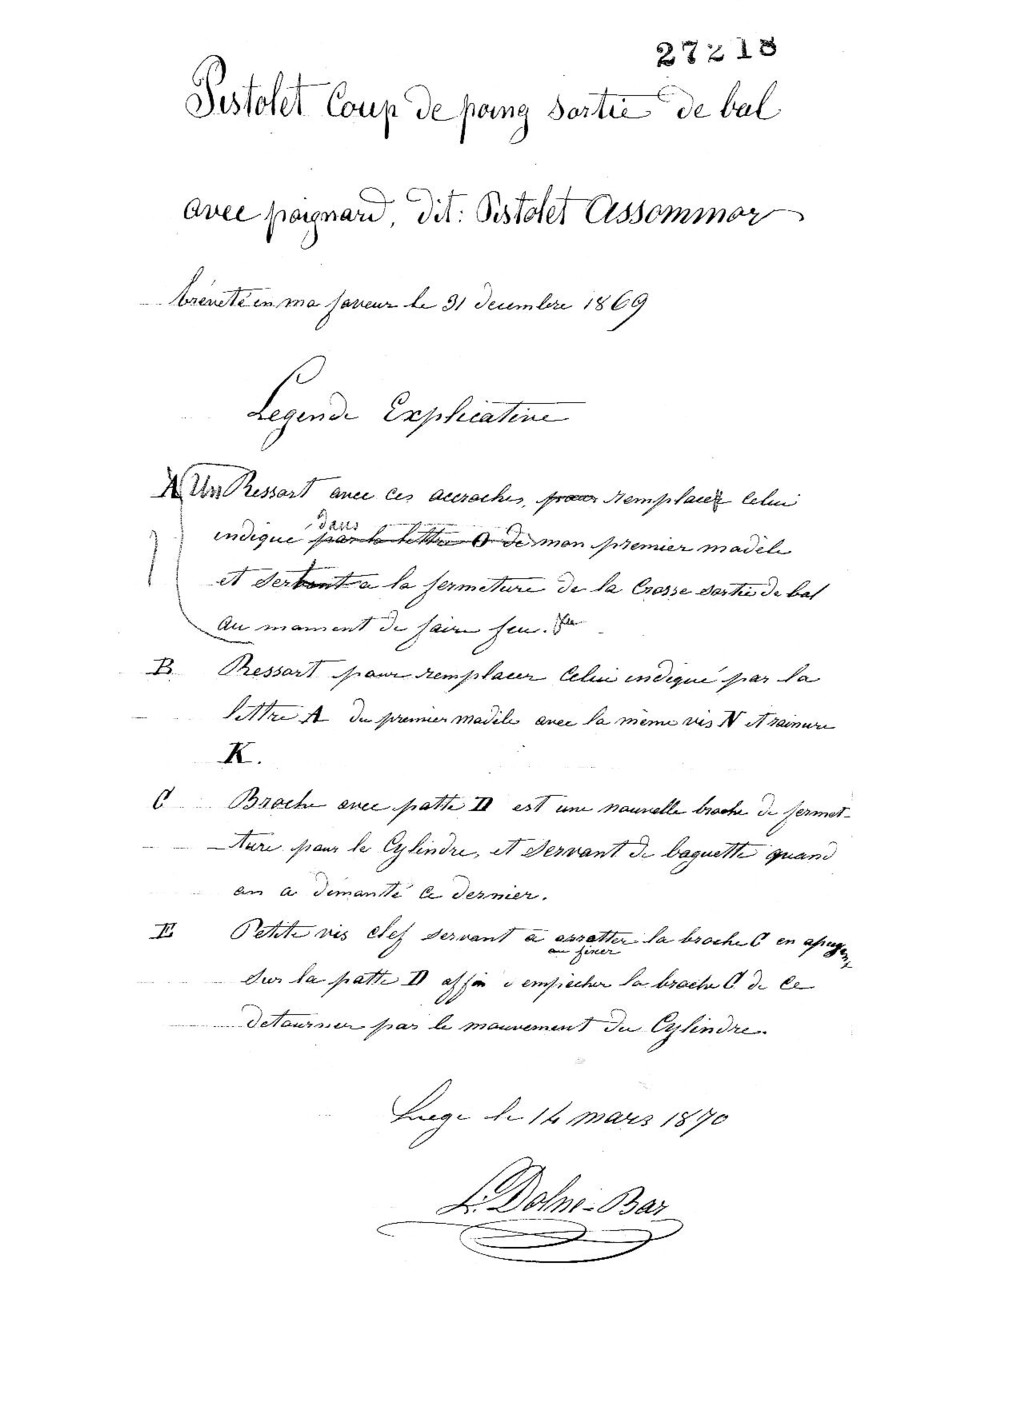 27218
Pistolet Coup de poing sortie de bal
avec poignard, dit: Pistolet Assommor
bréveté en ma faveur le 31 decembre 1869
Legende Explicative
A Un Ressort avec ces accroches, pour remplacer celui
dans
indiqué par la lettre O de mon premier modèle
et servant a la fermeture de la Crosse sortie de bal
au moment de faire feu.
B Ressort pour remplacer celui indiqué par la
lettre A du premier modèle avec la même vis N et rainure
K.
C Broche avec patte D est une nouvelle broche de fermet-
ture pour le Cylindre, et servant de baguette quand
on a démonté ce dernier.
E Petite vis clef servant à arretter la broche C en apuyent
ou fixer
sur la patte D affin d'empiecher la broche C de ce
detourner par le mouvement du Cylindre.
Liege le 14 mars 1870
L. Dolne-Bar